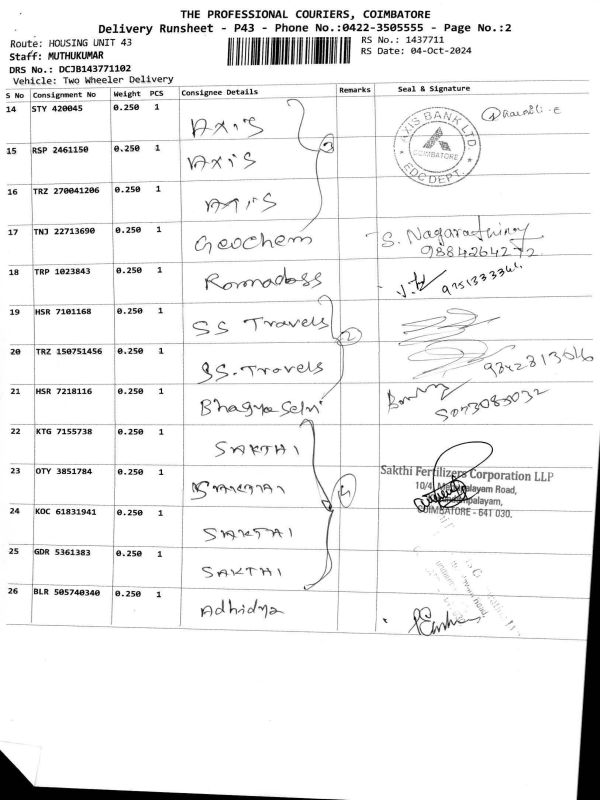 THE PROFESSIONAL COURIERS, COIMBATORE
Delivery Runsheet - P43 - Phone No.:0422-3505555 - Page No.:2
Route: HOUSING UNIT 43
RS No.: 1437711
Staff: MUTHUKUMAR
RS Date: 04-Oct-2024
DRS No.: DCJB143771102
Vehicle: Two Wheeler Delivery
S No Consignment No Weight PCS Consignee Details Remarks Seal & Signature
14 STY 420045 0.250 1 AXIS
AXIS BANK LTD.
COIMBATORE
EDC DEPT.
15 RSP 2461150 0.250 1 AXIS 3
16 TRZ 270041206 0.250 1 AXIS
17 TNJ 22713690 0.250 1 Geochem S. Nagarathinam
9884264272
18 TRP 1023843 0.250 1 Ramadoss
19 HSR 7101168 0.250 1 SS Travels 2
20 TRZ 150751456 0.250 1 SS.Travels
21 HSR 7218116 0.250 1 Bhagya Selvi
22 KTG 7155738 0.250 1 SAKTHI
23 OTY 3851784 0.250 1 SAKTHI 4
Sakthi Fertilizers Corporation LLP
COIMBATORE - 641 030.
24 KOC 61831941 0.250 1 SAKTHI
25 GDR 5361383 0.250 1 SAKTHI
26 BLR 505740340 0.250 1 Adhidya